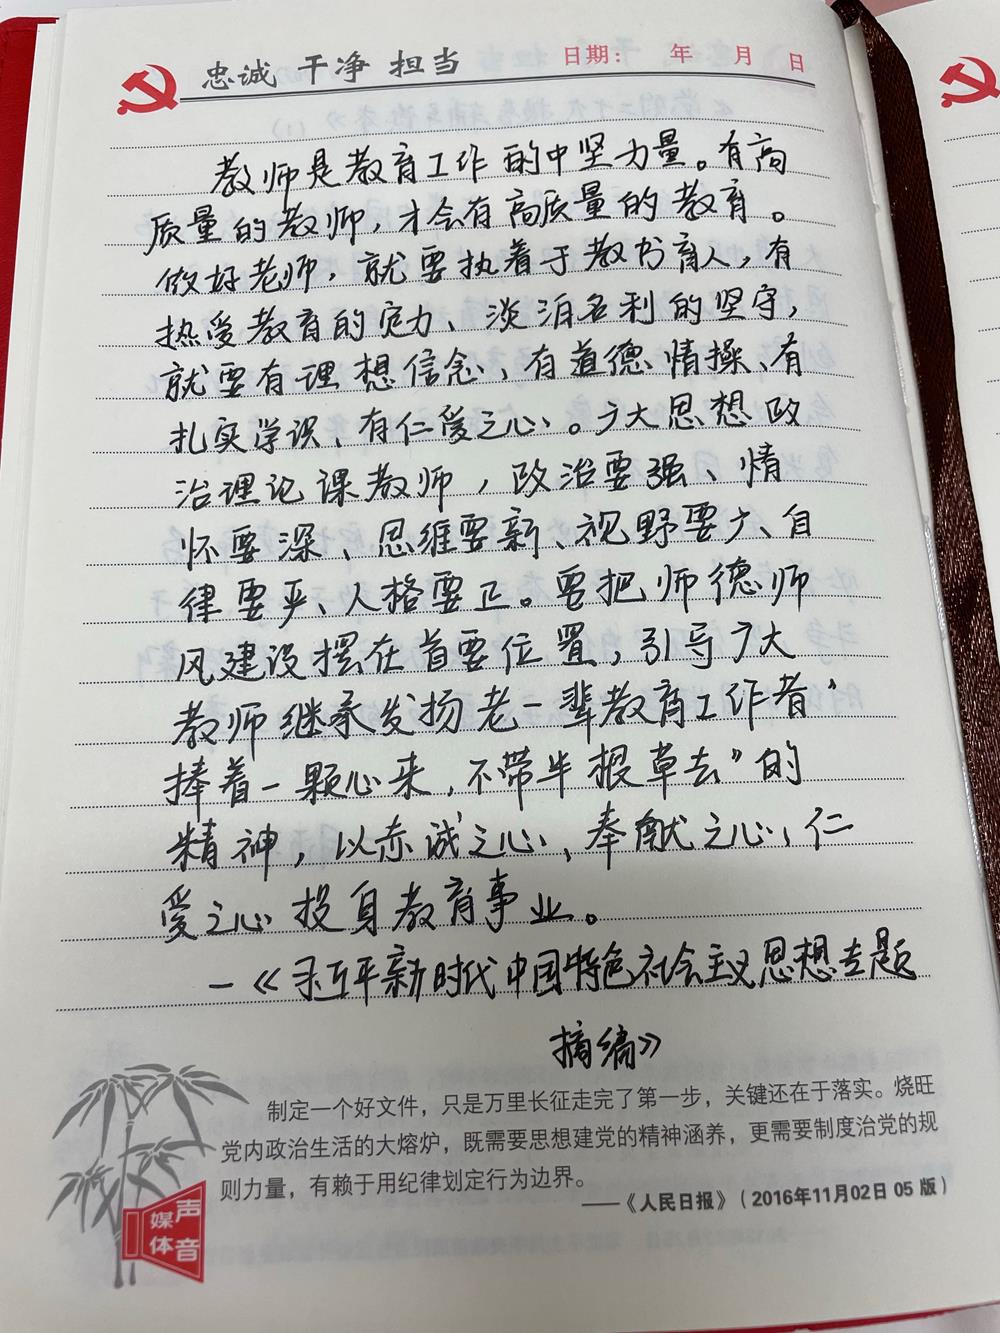 忠诚 干净 担当
日期： 年 月 日
教师是教育工作的中坚力量。有高
质量的教师，才会有高质量的教育。
做好老师，就要执着于教书育人，有
热爱教育的定力、淡泊名利的坚守，
就要有理想信念、有道德情操、有
扎实学识、有仁爱之心。广大思想政
治理论课教师，政治要强、情
怀要深、思维要新、视野要广、自
律要严、人格要正。要把师德师
风建设摆在首要位置，引导广大
教师继承发扬老一辈教育工作者“
捧着一颗心来，不带半根草去”的
精神，以赤诚之心、奉献之心、仁
爱之心投身教育事业。
—《习近平新时代中国特色社会主义思想专题
摘编》
制定一个好文件，只是万里长征走完了第一步，关键还在于落实。烧旺
党内政治生活的大熔炉，既需要思想建党的精神涵养，更需要制度治党的规
则力量，有赖于用纪律划定行为边界。
——《人民日报》（2016年11月02日 05 版）
媒体
声音